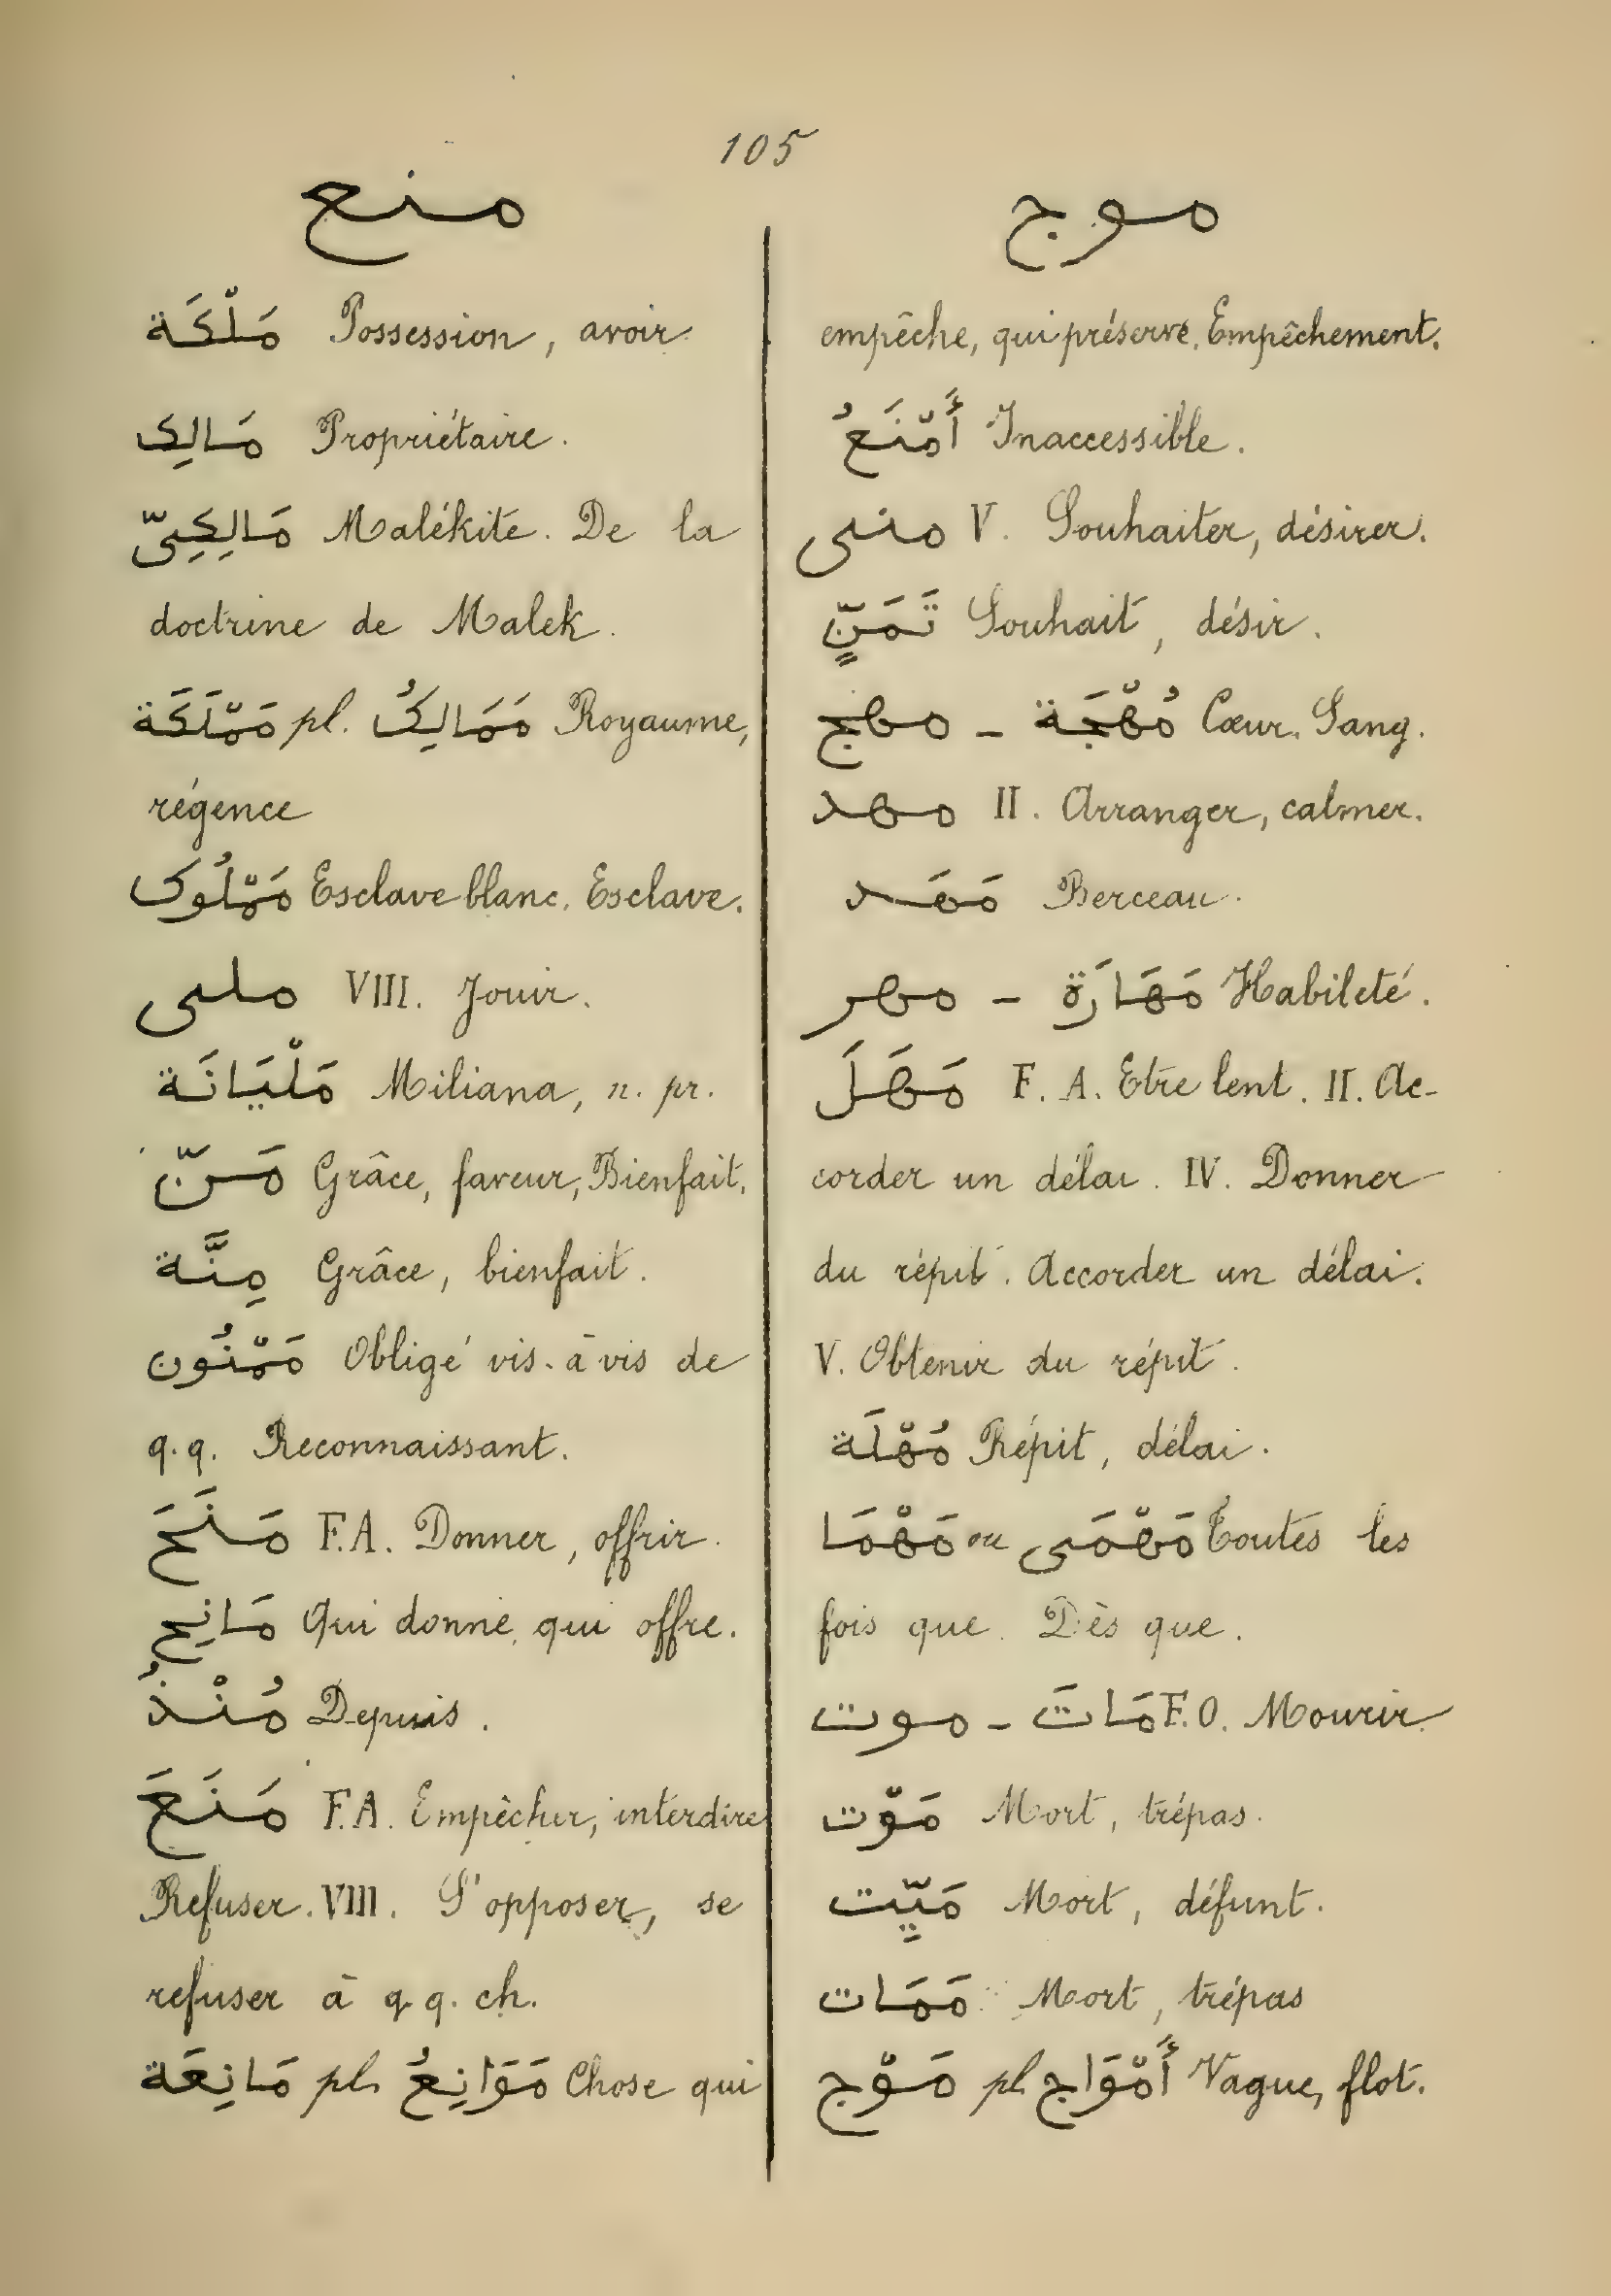 105
منع
مَلْكَة Possession, avoir
مَالِك Propriétaire.
مَالِكِىّ Malékite. De la
doctrine de Malek.
مَمْلَكَة pl. مَمَالِكُ Royaume,
régence
مَمْلُوك Esclave blanc. Esclave.
ملى VIII. Jouir.
مَلْيَانَة Miliana, n. pr.
مَنّ Grâce, faveur, Bienfait.
مِنَّة Grâce, bienfait.
مَمْنُون Obligé vis-à vis de
q.q. Reconnaissant.
مَنَحَ F.A. Donner, offrir.
مَانِح Qui donne, qui offre.
مُنْذُ Depuis.
مَنَعَ F.A. Empêcher, interdire
Refuser. VIII. S'opposer, se
refuser à q q. ch.
مَانِعَة pl. مَوَانِعُ Chose qui
موج
empêche, qui préserve. Empêchement.
أَمْنَعُ Inaccessible.
منى V. Souhaiter, désirer.
تَمَنٍّ Souhait, désir.
مهج – مُهْجَة Cœur. Sang.
مهد II. Arranger, calmer.
مَهَد Berceau.
مهر – مَهَارَة Habileté.
مَهَلَ F. A. Etre lent. II. Ac-
corder un délai. IV. Donner
du répit. Accorder un délai.
V. Obtenir du répit.
مُهْلَة Répit, délai.
مَهْمَا ou مَهْمَى Toutes les
fois que. Dès que.
موت – مَاتَ F.O. Mourir.
مَوْت Mort, trépas.
مَيِّت Mort, défunt.
مَمَات Mort, trépas
مَوْج pl أَمْوَاج Vague, flot.